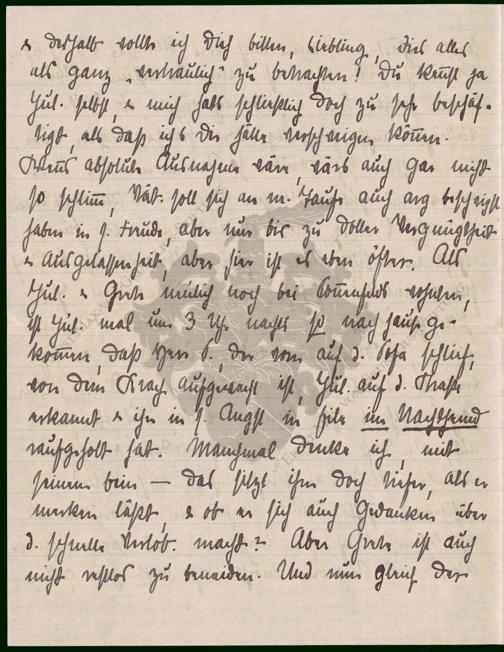 & deshalb wollte ich Dich bitten, Liebling, dies alles
als ganz „vertraulich" zu betrachten! Du kennst ja
Jul. selbst, & mich hats schliesslich doch zu sehr beschäf-
tigt, als daß ichs Dir hätte verschweigen können.
Wenns absolute Ausnahme wäre, wärs auch gar nicht
so schlimm, Vat. soll sich an m. Taufe auch arg beschwipst
haben in s. Freude, aber nur bis zu doller Vergnügtheit
& Ausgelassenheit, aber hier ist es eben öfter. Als
Jul. & Grete neulich noch bei wohnten,
ist Jul. mal um 3 Uhr nachts so nach Hause ge-
kommen, daß Herr S., der vorn auf d. Sofa schlief,
von dem Krach aufgewacht ist, Jul. auf d. Straße
erkannt & ihn in s. Angst in Eile im Nachthemd
raufgeholt hat. Manchmal denke ich, mit
seinem Bein — das sitzt ihm doch tiefer, als er
merken läßt, & ob er sich auch Gedanken über
d. schnelle Verlob. macht? Aber Grete ist auch
nicht restlos zu beneiden. Und nun gleich der